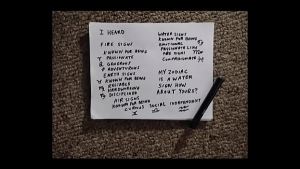 I HEARD
FIRE SIGNS
KNOWN FOR BEING
♈ PASSIONATE
♌ GENEROUS
♐ ADVENTUROUS
EARTH SIGNS
KNOWN FOR BEING
RELIABLE
HARDWORKING
DISCIPLINED
AIR SIGNS
KNOWN FOR BEING
CURIOUS SOCIAL INDEPENDENT
WATER SIGNS
KNOWN FOR BEING
EMOTIONAL
PASSIONATE LIKE
FIRE SIGNS
COMPASSIONATE
MY ZODIAC
IS A WATER
SIGN HOW
ABOUT YOURS?